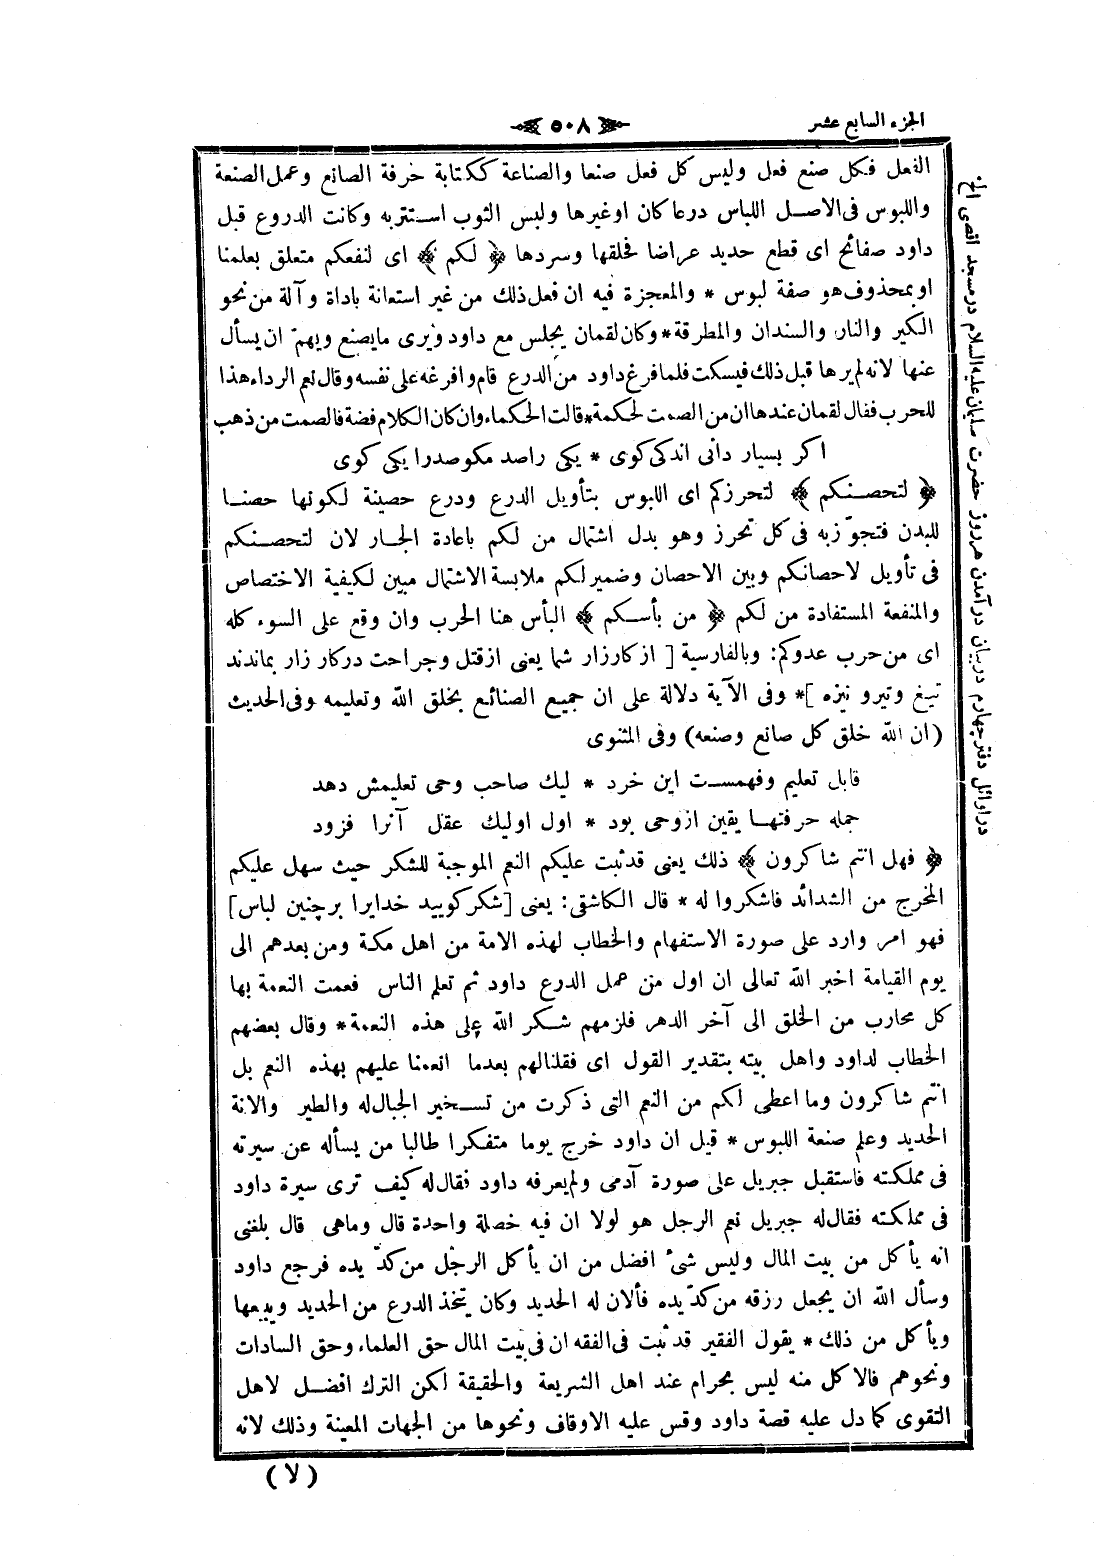 الجزء السابع عشر
٥٠٨
الفعل فكل صنع فعل وليس كل فعل صنعا والصناعة ككتابة حرفة الصانع وعمل الصنعة
واللبوس فى الاصل اللباس درعا كان او غيرها ولبس الثوب استتر به وكانت الدروع قبل
داود صفائح اى قطع حديد عراضا فحلقها وسردها ﴿ لكم ﴾ اى لنفعكم متعلق بعلمنا
او بمحذوف هو صفة لبوس * والمعجزة فيه ان فعل ذلك من غير استعانة باداة وآلة من نحو
الكير والنار والسندان والمطرقة * وكان لقمان يجلس مع داود ويرى ما يصنع ويهم ان يسأل
عنها لانه لم يرها قبل ذلك فيسكت فلما فرغ داود من الدرع قام وافرغه على نفسه وقال نعم الرداء هذا
للحرب فقال لقمان عندها ان من الصمت لحكمة * قالت الحكماء وان كان الكلام فضة فالصمت من ذهب
اكر بسيار دانى اندكى كوى * يكى راصد مكو صدرا يكى كوى
﴿ لتحصنكم ﴾ لتحرزكم اى اللبوس بتأويل الدرع ودرع حصينة لكونها حصنا
للبدن فتجوّز به فى كل تحرز وهو بدل اشتمال من لكم باعادة الجار لان لتحصنكم
فى تأويل لاحصانكم وبين الاحصان وضمير لكم ملابسة الاشتمال مبين لكيفية الاختصاص
والمنفعة المستفادة من لكم ﴿ من بأسكم ﴾ البأس هنا الحرب وان وقع على السوء كله
اى من حرب عدوكم : وبالفارسية [ از كارزار شما يعنى از قتل وجراحت دركار زار بماندند
تيغ وتير و نيزه ] * وفى الآية دلالة على ان جميع الصنائع بخلق الله وتعليمه وفى الحديث
(ان الله خلق كل صانع وصنعه) وفى المثنوى
قابل تعليم وفهمست اين خرد * ليك صاحب وحى تعليمش دهد
جمله حرفتها يقين از وحى بود * اول او ليك عقل آنرا فزود
﴿ فهل انتم شاكرون ﴾ ذلك يعنى قد ثبت عليكم النعم الموجبة للشكر حيث سهل عليكم
المخرج من الشدائد فاشكروا له * قال الكاشفى : يعنى [شكر كوييد خدايرا برچنين لباس]
فهو امر وارد على صورة الاستفهام والخطاب لهذه الامة من اهل مكة ومن بعدهم الى
يوم القيامة اخبر الله تعالى ان اول من عمل الدرع داود ثم تعلم الناس فعمت النعمة بها
كل محارب من الخلق الى آخر الدهر فلزمهم شكر الله على هذه النعمة * وقال بعضهم
الخطاب لداود واهل بيته بتقدير القول اى فقلنا لهم بعدما انعمنا عليهم بهذه النعم بل
انتم شاكرون وما اعطى لكم من النعم التى ذكرت من تسخير الجبال له والطير والانة
الحديد وعلم صنعة اللبوس * قيل ان داود خرج يوما متفكرا طالبا من يسأله عن سيرته
فى مملكته فاستقبل جبريل على صورة آدمى ولم يعرفه داود فقال له كيف ترى سيرة داود
فى مملكته فقال له جبريل نعم الرجل هو لولا ان فيه خصلة واحدة قال وماهى قال بلغنى
انه يأكل من بيت المال وليس شئ افضل من ان يأكل الرجل من كدّ يده فرجع داود
وسأل الله ان يجعل رزقه من كدّ يده فألان له الحديد وكان يتخذ الدرع من الحديد ويبيعها
ويأكل من ذلك * يقول الفقير قد ثبت فى الفقه ان فى بيت المال حق العلماء وحق السادات
ونحوهم فالاكل منه ليس بحرام عند اهل الشريعة والحقيقة لكن الترك افضل لاهل
التقوى كما دل عليه قصة داود وقس عليه الاوقاف ونحوها من الجهات المعينة وذلك لانه
(لا)
در اوائل دفتر چهارم در بيان در آمدن هر روز حضرت سليمان عليه السلام در مسجد اقصى الخ